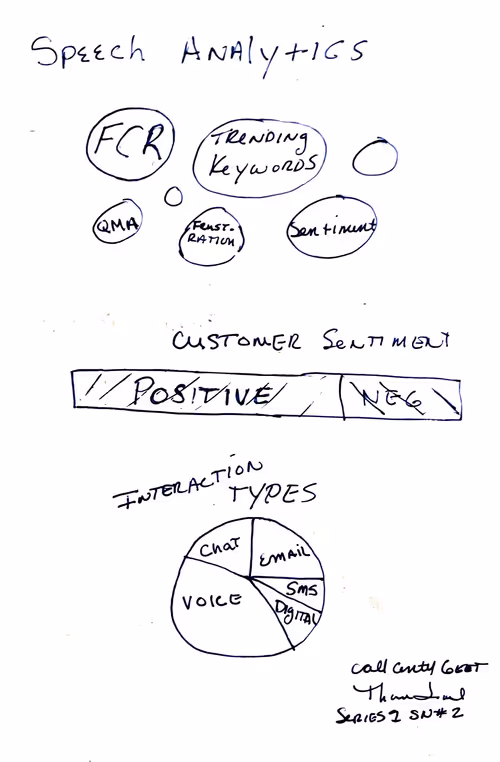 Speech Analytics
FCR
Trending
Keywords
QMA
Frust-
ration
Sentiment
Customer Sentiment
Positive
Neg
Interaction
Types
Chat
Email
SMS
Digital
Voice
Call
Series 2 SN# 2